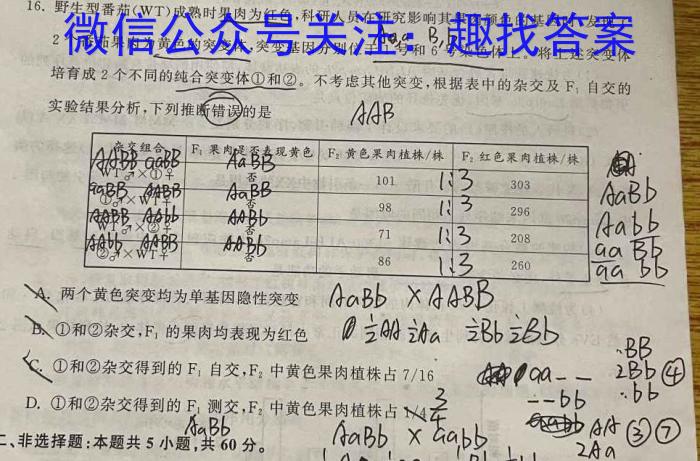 16. 野生型番茄(WT)成熟时果肉为红色,科研人员在研究影响其果肉颜色的基因时,发现了
微信公众号关注:趣找答案
2个番茄果肉为黄色的突变体,突变基因分别位于 号和6号染色体上。将上述突变体
培育成2个不同的纯合突变体①和②。不考虑其他突变,根据表中的杂交及F₁自交的
实验结果分析,下列推断错误的是
AAB
杂交组合 F₁果肉是否表现黄色 F₂黄色果肉植株/株 F₂红色果肉植株/株
AABB aaBB AaBB
WT♂×①♀ 否 101 1:3 303
aaBB AABB AaBB
①♂×WT♀ 否 98 1:3 296
AABB AAbb AABb
WT♂×②♀ 否 71 1:3 208
AAbb AABB AABb
②♂×WT♀ 否 86 1:3 260
AaBb
Aabb
aaBb
aabb
A. 两个黄色突变均为单基因隐性突变
AaBb × AABB
B. ①和②杂交,F₁的果肉均表现为红色
½AA ½Aa ½Bb ½Bb
C. ①和②杂交得到的F₁自交,F₂中黄色果肉植株占7/16
aa_ _
_ _bb
BB
2Bb ④
bb
D. ①和②杂交得到的F₁测交,F₂中黄色果肉植株占1/4
3/4
AA ③⑦
2Aa
AaBb
二、非选择题:本题共5小题,共60分。
AaBb × aabb